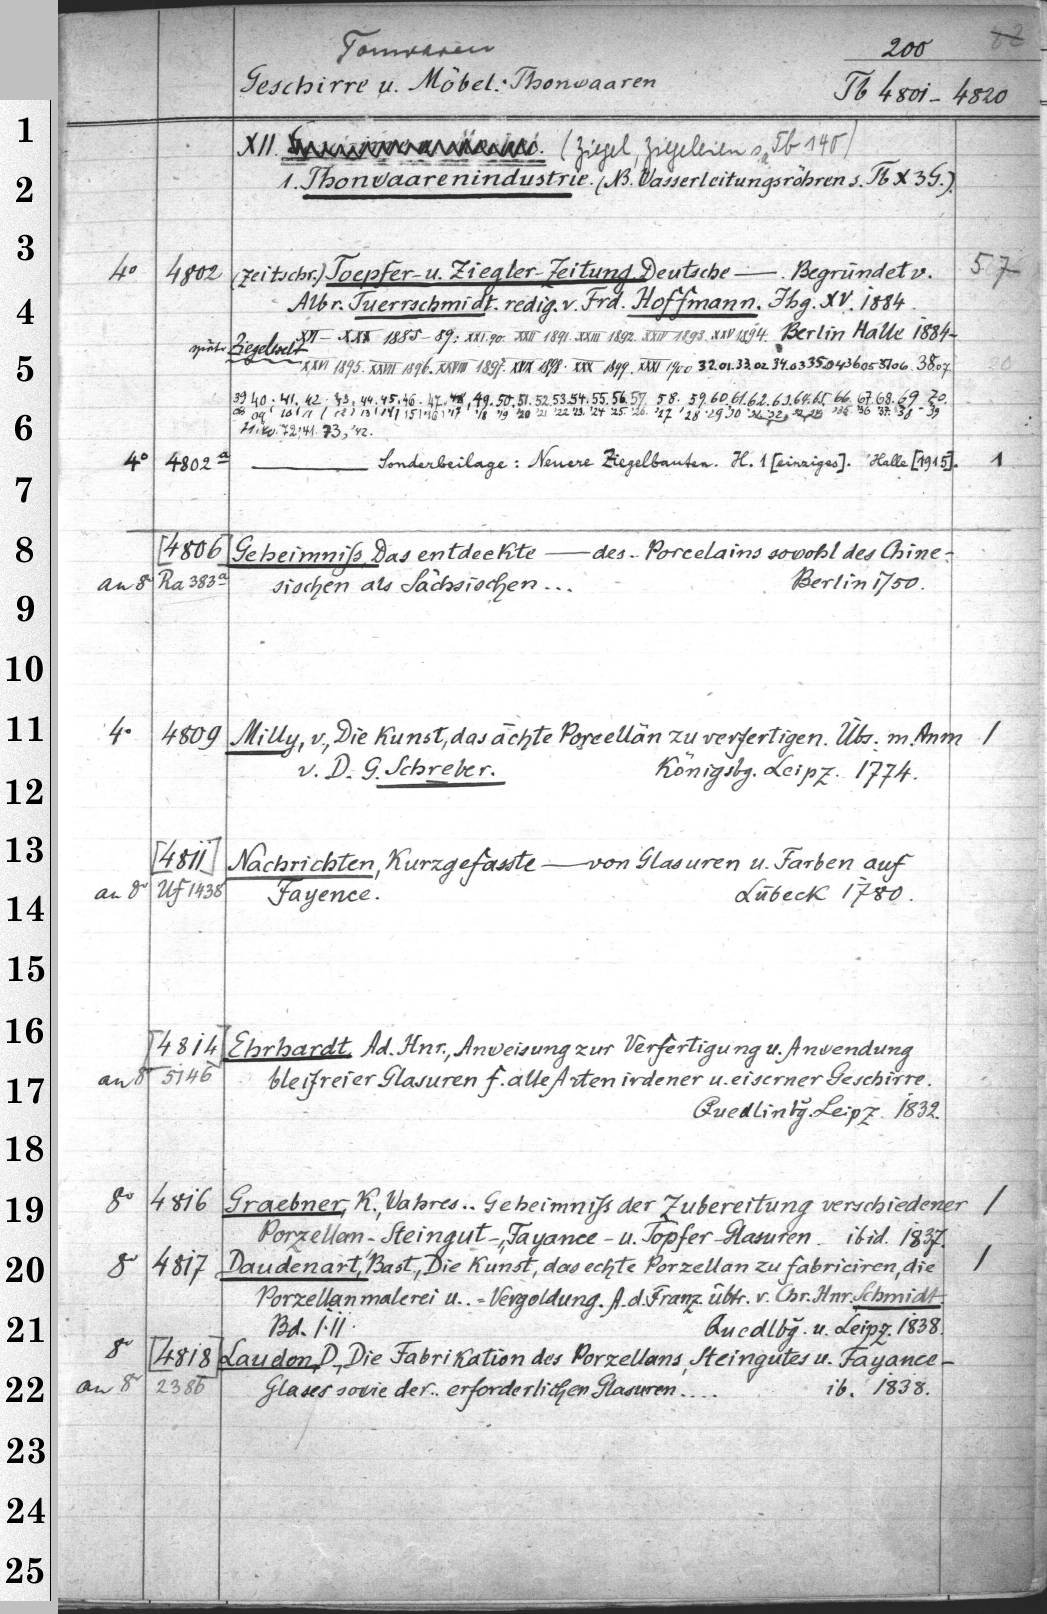 Tonwaren 200
Geschirre u. Möbel: Thonwaaren Tb 4801-4820
1 XII. (Ziegel, Ziegeleien s. Tb 140)
2 1. Thonwaarenindustrie. (NB. Wasserleitungsröhren s. Tb X 3 G.)
3
4° 4802 (Zeitschr.) Toepfer- u. Ziegler-Zeitung Deutsche — . Begründet v. 57
4 Albr. Tuerrschmidt. redig. v. Frd. Hoffmann. Jhg. XV. 1884.
Ziegelwelt XVI - XXX 1885-89; XXI.90. XXII 1891. XXIII 1892. XXIV 1893. XXV 1894. Berlin Halle 1884-
5 XXVI 1895. XXVII 1896. XXVIII 1897. XXIX 1898. XXX 1899. XXXI 1900 32.01. 33.02 34.03 35.04 36.05 37.06. 38.07 20
39 40. 41. 42. 43. 44. 45. 46. 47. 48. 49. 50. 51. 52. 53. 54. 55. 56. 57. 58. 59. 60. 61. 62. 63. 64. 65. 66. 67. 68. 69. 70.
6
72.41. 73, '42.
4° 4802a — Sonderbeilage: Neuere Ziegelbauten. H. 1 [einziges]. Halle [1915]. 1
7
8 [4806] Geheimniß, Das entdeckte — des.. Porcelains sowohl des Chine-
an 8° Ra 383a sischen als Sächsischen ... Berlin 1750.
9
10
11 4° 4809 Milly, v., Die Kunst, das ächte Porcellän zu verfertigen. Übs. m. Anm 1
12 v. D. G. Schreber. Königsbg. Leipz. 1774.
13 [4811] Nachrichten, Kurzgefasste — von Glasuren u. Farben auf
14 an 8° Uf 1438 Fayence. Lübeck 1780.
15
16 [4814] Ehrhardt, Ad. Hnr., Anweisung zur Verfertigung u. Anwendung
17 an 8° 5146 bleifreier Glasuren f. alle Arten irdener u. eiserner Geschirre.
Quedlinbg. Leipz. 1832.
18
19 8° 4816 Graebner, K., Wahres.. Geheimniß der Zubereitung verschiedener 1
Porzellan- Steingut-, Fayance- u. Töpfer-Glasuren. ibid. 1837.
20 8° 4817 Daudenart, Bast., Die Kunst, das echte Porzellan zu fabriciren, die 1
Porzellanmalerei u.. -Vergoldung. A. d. Franz. übtr. v. Chr. Hnr. Schmidt.
21 Bd. I. II. Quedlbg. u. Leipz. 1838.
8° [4818] Laudon, D., Die Fabrikation des Porzellans, Steingutes u. Fayance-
22 an 8° 2386 Glases sowie der.. erforderlichen Glasuren.... ib. 1838.
23
24
25